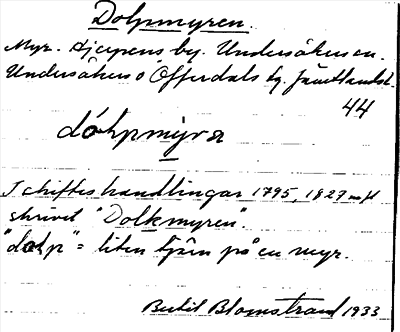 Dolpmyren.
Myr. Ajerpens by. Undersåkers sn.
Undersåkers o Offerdals tg. Jämtlands l.
44
dólpmýra
I skifteshandlingar 1795, 1827 m fl
skrivet "Dolkmyren".
"dolp" = liten tjärn på en myr.
Bertil Blomstrand 1933